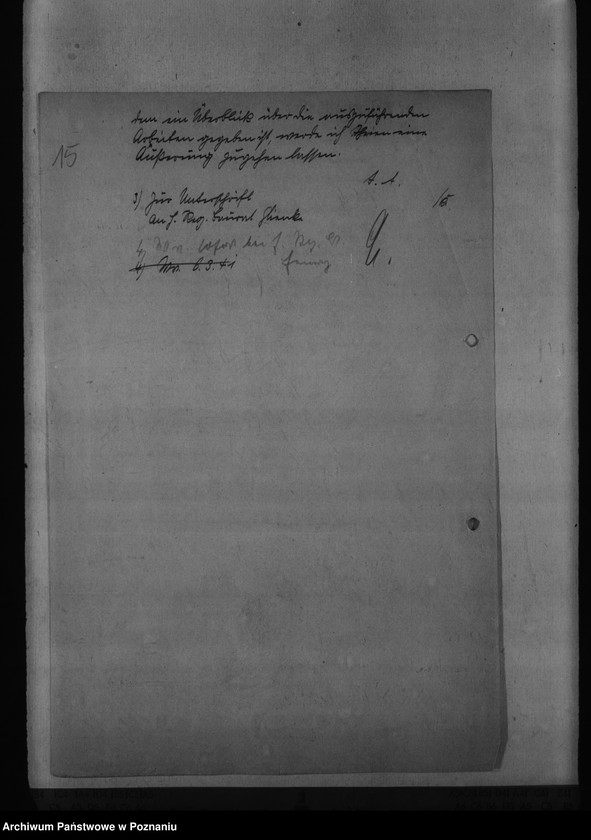 dem ein Überblick über die auszuführenden
Arbeiten gegeben ist, werde ich Ihnen eine
Äußerung zugehen lassen.
15
I. A.
3) Zur Unterschrift
an H. Reg. Baurat
bei H. Reg.
4) Wv. 6.5.41
Archiwum Państwowe w Poznaniu